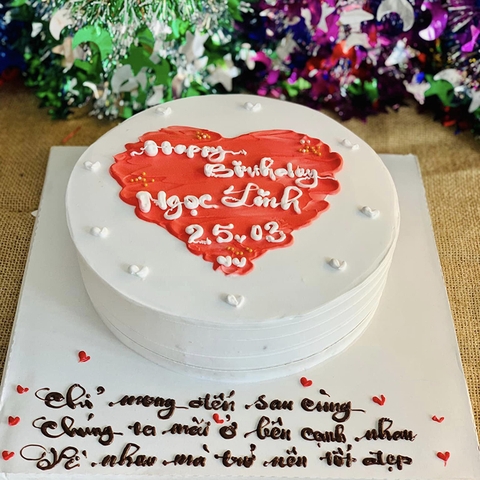 Happy
Birthday
Ngọc Linh
25.03
Chỉ mong đến sau cùng
Chúng ta mãi ở bên cạnh nhau
Vì nhau mà trở nên tốt đẹp